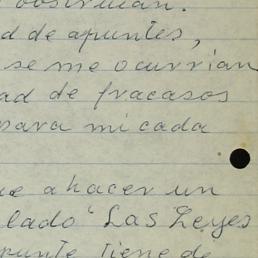 obstruían.
d de apuntes,
se me ocurrían
ad de fracasos
para mi cada
ue a hacer un
lado "Las Leyes
punte tiene de